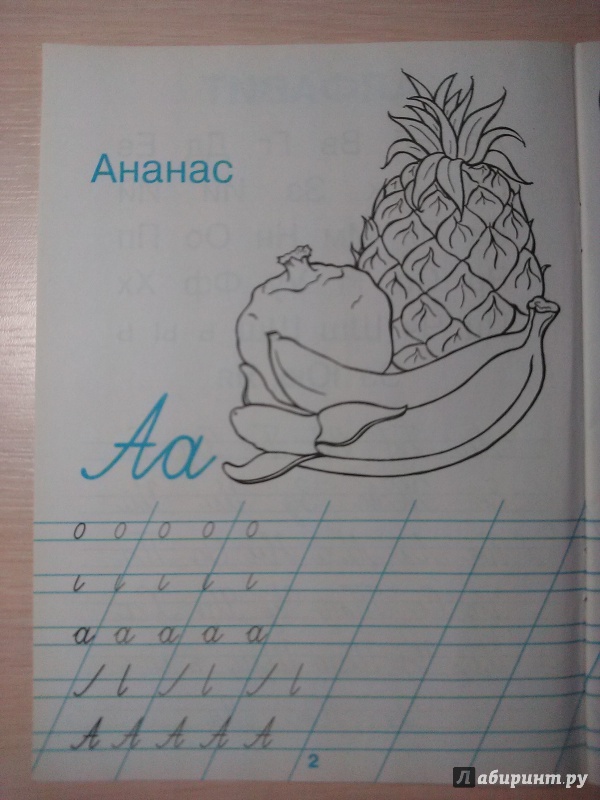 Ананас
Аа
о о о о о
а а а а а
А А А А А
2
Лабиринт.ру